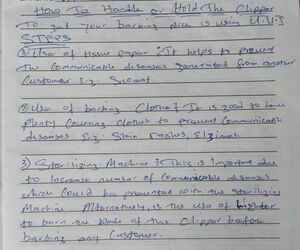 How To Handle or Hold The Clipper
To get your barbing nice is using U.U.I
STEPS
① Use of tissue paper : It helps to prevent
the Communicable diseases generated from another
Customer E.g. Sweat
② Use of barbing Clothes : It is good to have
plenty Covering clothes to prevent Communicable
diseases E.g. Skin rashes,
③ Sterilizing Machine : This is important due
to Increase number of Communicable diseases
which Could be prevented with the Sterilizing
Machine Alternatively, is the use of
to burn the blade of the Clipper before
barbing any Customer.